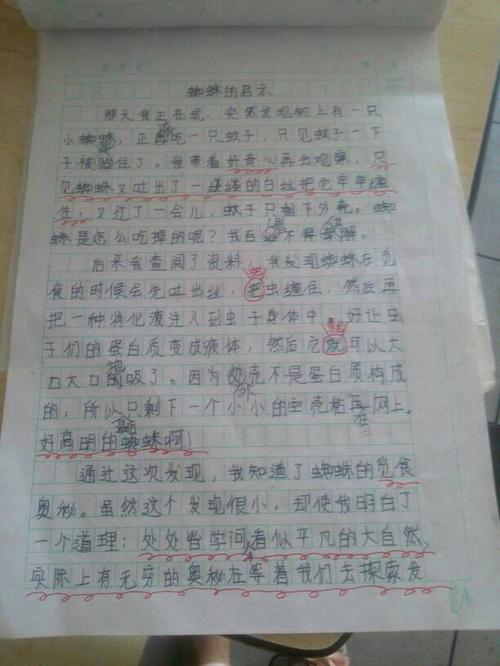 蜘蛛的启示
那天我正在玩，突然发现树上有一只
小蜘蛛，正在吃一只蚊子，只见蚊子一下
子被贴住了。我带着好奇心再去观察，只
见蜘蛛又吐出了一缕缕的白丝把它牢牢缠
住，又过了一会儿，蚊子只剩下外壳。蜘
蛛是怎么吃掉的呢？我百思不得其解。
后来我查阅了资料，我发现蜘蛛在觅
食的时候会先吐出丝，把虫缠住，然后再
把一种消化液注入到虫子身体中，好让虫
子们的蛋白质变成液体，然后它就可以大
口大口地吸了。因为外壳不是蛋白质构成
的，所以只剩下一个小小的空壳粘在网上。
好高明的蜘蛛啊！
通过这次发现，我知道了蜘蛛的觅食
奥秘。虽然这个发现很小，却使我明白了
一个道理：处处皆学问，看似平凡的大自然，
实际上有无穷的奥秘在等着我们去探索发